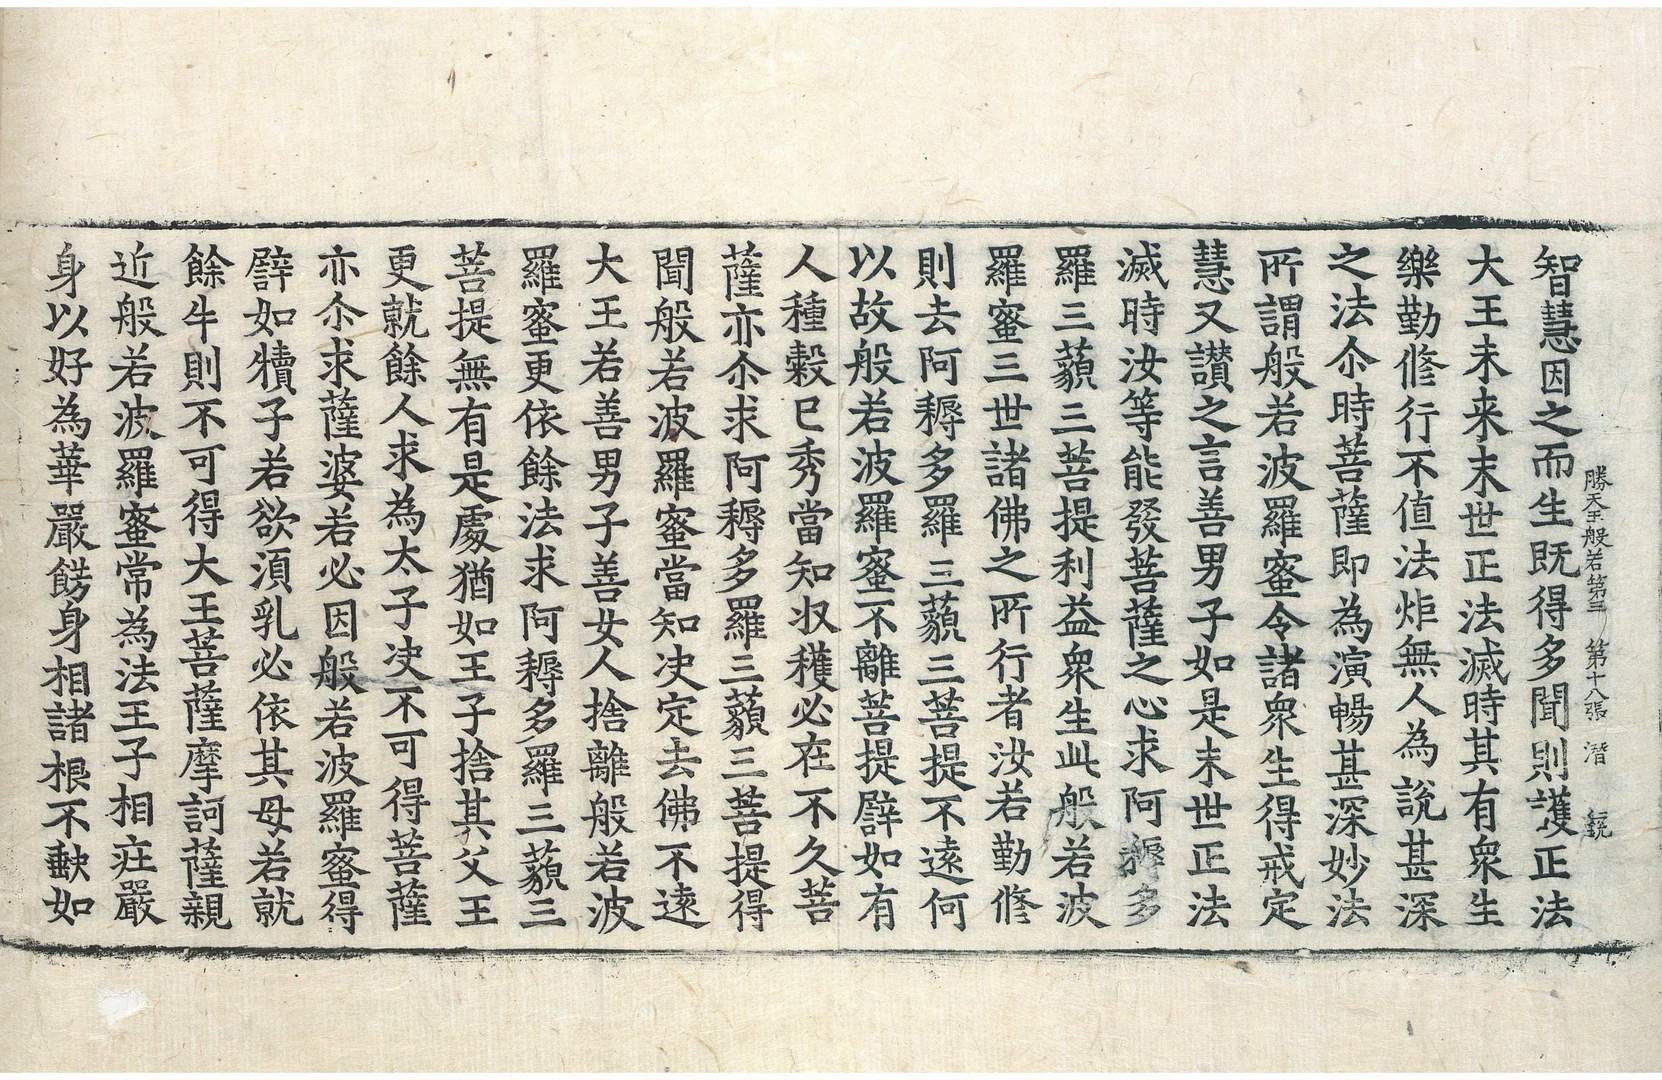 勝天王般若第三　第十八張　潛
智慧因之而生既得多聞則護正法
大王未来末世正法滅時其有衆生
樂勤修行不值法炬無人為說甚深
之法尒時菩薩即為演暢甚深妙法
所謂般若波羅蜜令諸衆生得戒定
慧又讃之言善男子如是末世正法
滅時汝等能發菩薩之心求阿耨多
羅三藐三菩提利益衆生此般若波
羅蜜三世諸佛之所行者汝若勤修
則去阿耨多羅三藐三菩提不遠何
以故般若波羅蜜不離菩提譬如有
人種穀已秀當知収穫必在不久菩
薩亦尒求阿耨多羅三藐三菩提得
聞般若波羅蜜當知决定去佛不遠
大王若善男子善女人捨離般若波
羅蜜更依餘法求阿耨多羅三藐三
菩提無有是處猶如王子捨其父王
更就餘人求為太子决不可得菩薩
亦尒求薩婆若必因般若波羅蜜得
譬如犢子若欲湏乳必依其母若就
餘牛則不可得大王菩薩摩訶薩親
近般若波羅蜜常為法王子相莊嚴
身以好為華嚴餝身相諸根不缺如